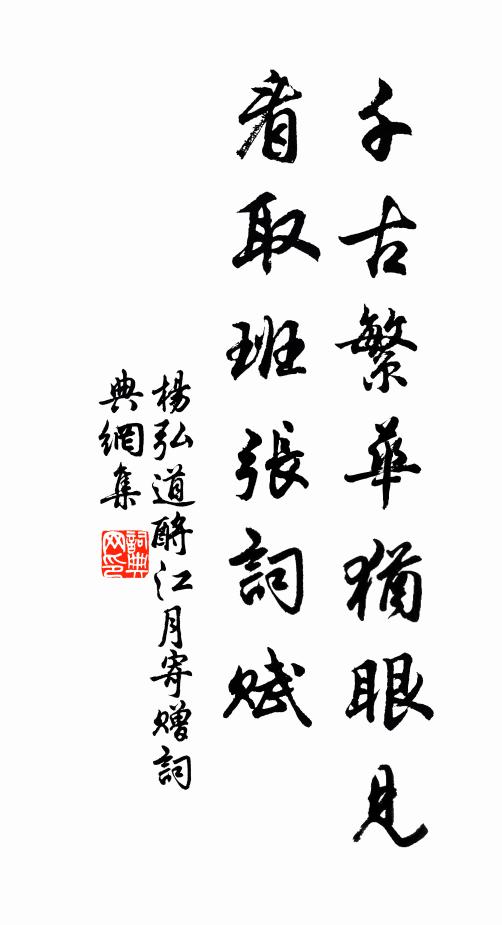 千古繁華猶眼見
看取班張詞賦
楊弘道酹江月寄贈詞
典網集
詞典网印